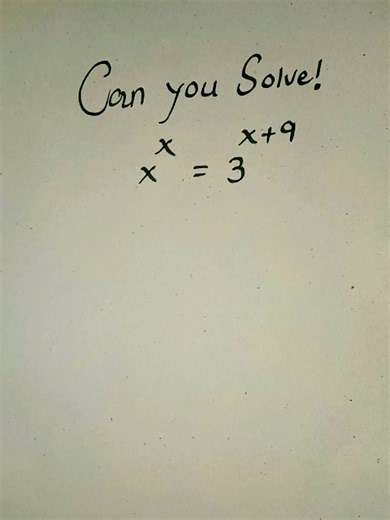 Can you Solve!
x^x = 3^{x+9}